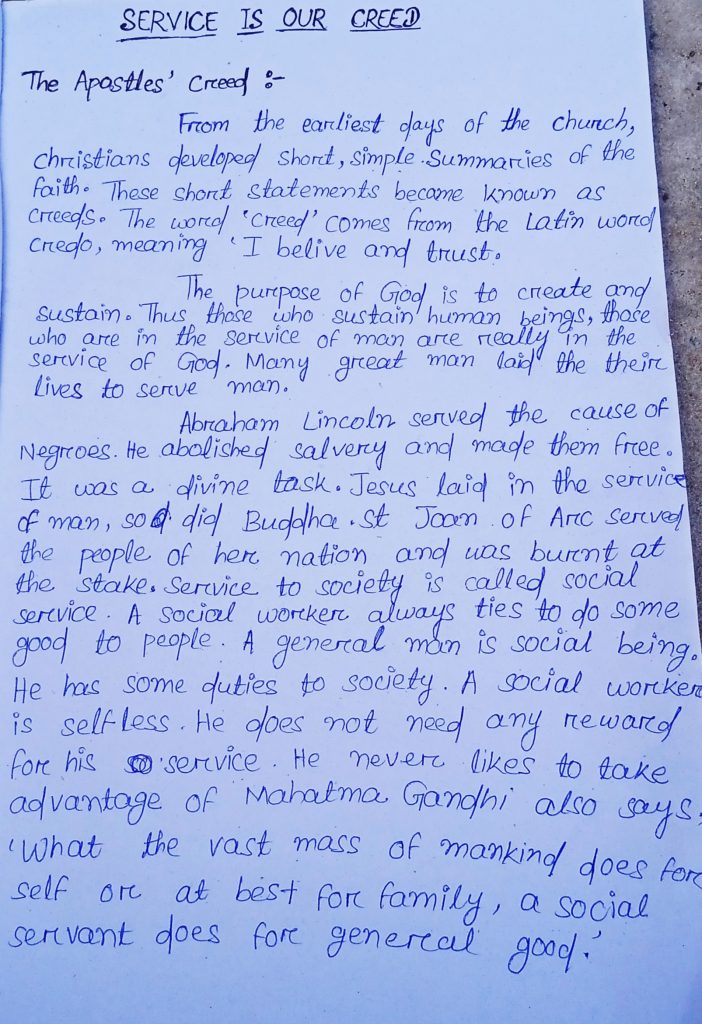 SERVICE IS OUR CREED
The Apostles' Creed :-
From the earliest days of the church,
christians developed short, simple summaries of the
faith. These short statements become known as
creeds. The word 'creed' comes from the Latin word
credo, meaning 'I belive and trust.
The purpose of God is to create and
sustain. Thus those who sustain human beings, those
who are in the service of man are really in the
service of God. Many great man laid the their
lives to serve man.
Abraham Lincoln served the cause of
Negroes. He abolished salvery and made them free.
It was a divine task. Jesus laid in the service
of man, so did Buddha. St Joan of Arc served
the people of her nation and was burnt at
the stake. Service to society is called social
service. A social worker always ties to do some
good to people. A general man is social being.
He has some duties to society. A social worker
is selfless. He does not need any reward
for his service. He never likes to take
advantage of Mahatma Gandhi also says,
'What the vast mass of mankind does for
self or at best for family, a social
servant does for general good.'